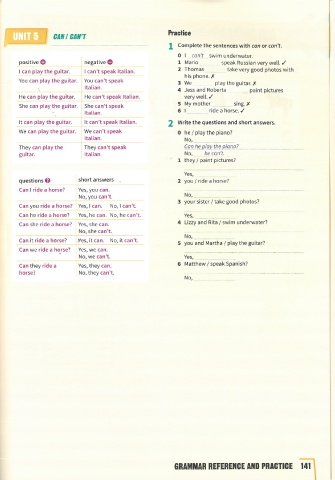 UNIT 5 CAN / CAN'T
positive + negative −
I can play the guitar. I can't speak Italian.
You can play the guitar. You can't speak
Italian.
He can play the guitar. He can't speak Italian.
She can play the guitar. She can't speak
Italian.
It can play the guitar. It can't speak Italian.
We can play the guitar. We can't speak
Italian.
They can play the They can't speak
guitar. Italian.
questions ? short answers
Can I ride a horse? Yes, you can.
No, you can't.
Can you ride a horse? Yes, I can. No, I can't.
Can he ride a horse? Yes, he can. No, he can't.
Can she ride a horse? Yes, she can.
No, she can't.
Can it ride a horse? Yes, it can. No, it can't.
Can we ride a horse? Yes, we can.
No, we can't.
Can they ride a Yes, they can.
horse? No, they can't.
Practice
1 Complete the sentences with can or can't.
0 I can't swim underwater.
1 Mario speak Russian very well. ✓
2 Thomas take very good photos with
his phone. ✗
3 We play the guitar. ✗
4 Jess and Roberta paint pictures
very well. ✓
5 My mother sing. ✗
6 I ride a horse. ✓
2 Write the questions and short answers.
0 he / play the piano?
No,
Can he play the piano?
No, he can't.
1 they / paint pictures?
Yes,
2 you / ride a horse?
No,
3 your sister / take good photos?
Yes,
4 Lizzy and Rita / swim underwater?
No,
5 you and Martha / play the guitar?
Yes,
6 Matthew / speak Spanish?
No,
GRAMMAR REFERENCE AND PRACTICE 141